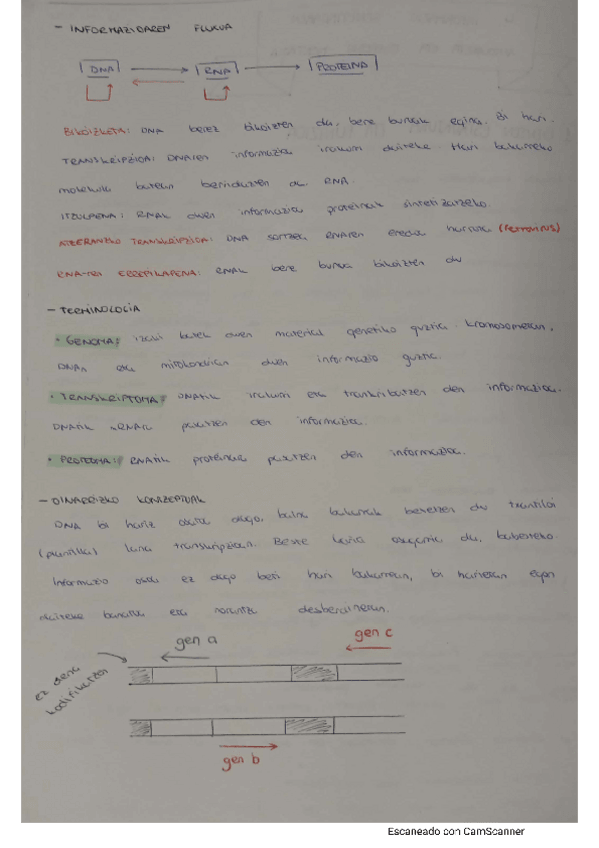 - INFORMAZIOAREN FLUXUA
DNA RNA PROTEINA
BIKOIZKETA: DNA berez bikoizten da, bere burua egina. Bi hari.
TRANSKRIPZIOA: DNAren informazioa irakurri daiteke Hari bakarreko
molekula batean berridazten da RNA.
ITZULPENA: RNAk duen informazioa proteinak sintetizatzeko.
ATZERANZKO TRANSKRIPZIOA: DNA sortzea RNAren eredua hartuta (retrovirus)
RNA-ren ERREPIKAPENA: RNAk bere burua bikoizten du
- TERMINOLOGIA
• GENOMA: izaki batek duen material genetiko guztia. kromosometan,
DNAn eta mitokondrian duen informazio guztia.
• TRANSKRIPTOMA: DNAtik irakurri eta transkribatzen den informazioa.
DNAtik RNAra pasatzen den informazioa.
• PROTEOMA: RNAtik proteinara pasatzen den informazioa.
- OINARRIZKO KONTZEPTUAK
DNA bi hariz osatuta dago, baina bakarrak betetzen du txantiloi
(plantilla) lana transkripzioan. Beste haria osagarria da, babesteko.
Informazio osoa ez dago beti hari bakarrean, bi harietan egon
daiteke banatuta eta norantza desberdinetan.
gen a
gen c
ez dena
kodifikatzen
gen b
Escaneado con CamScanner